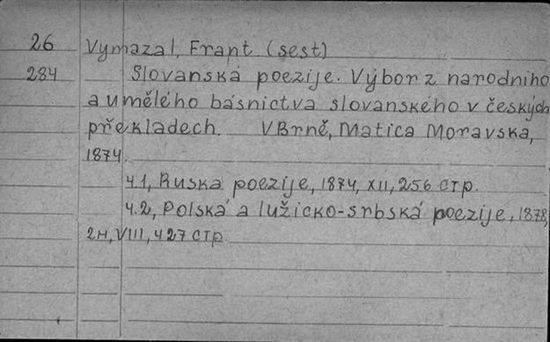 26 Vymazal, Frant. (sest)
284 Slovanská poezije. Výbor z narodniho
a umělého básnictva slovanského v českých
překladech. V Brně, Matica Moravska,
1874.
Ч.1, Ruska poezije, 1874, XII, 256 стр.
Ч.2, Polská a lužicko-srbská poezije, 1878,
2н, VIII, 427 стр.